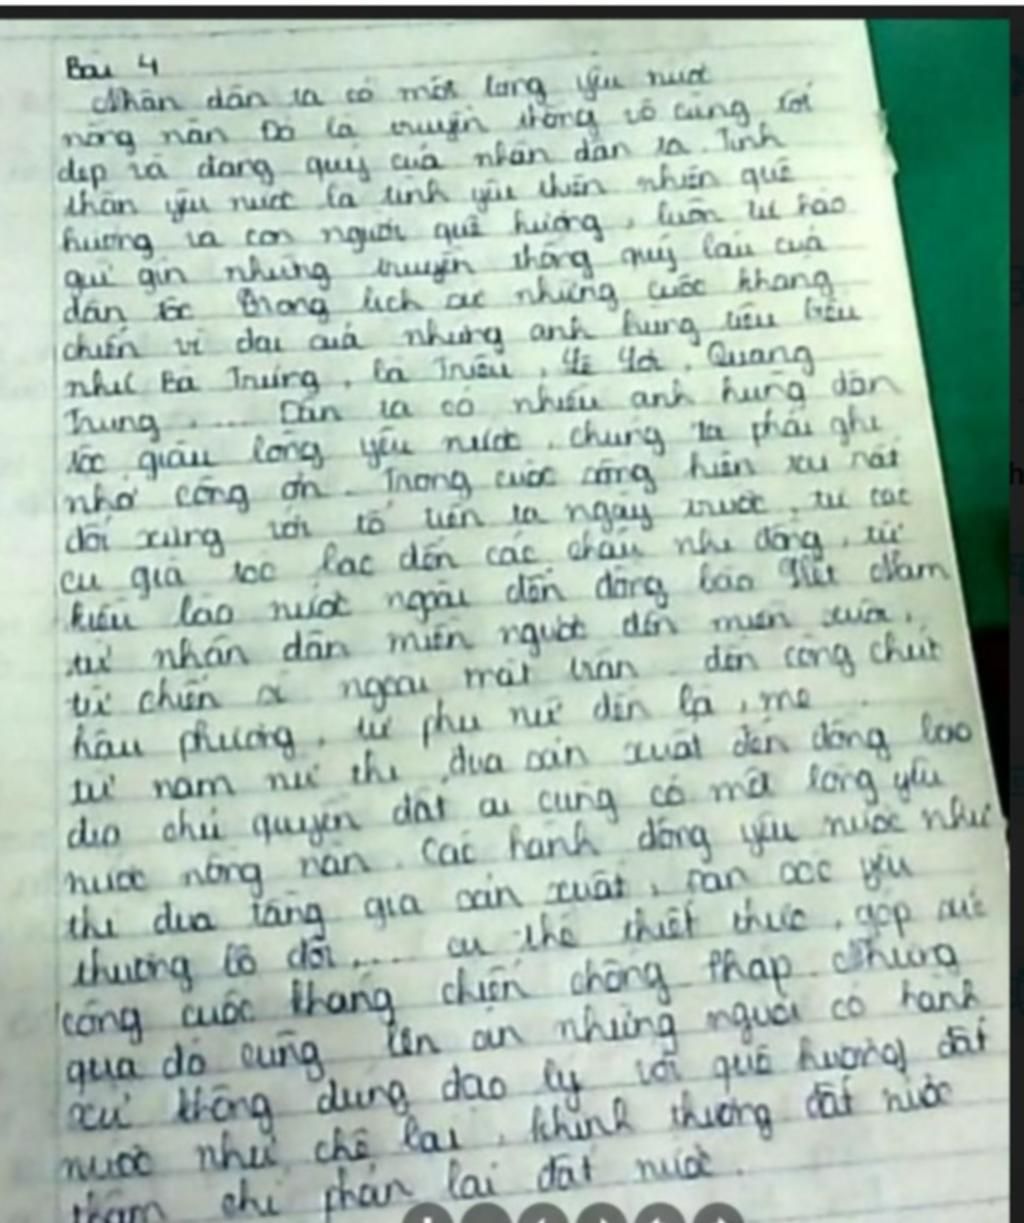 Bài 4
Nhân dân ta có một lòng yêu nước
nồng nàn Đó là truyền thống vô cùng tốt
đẹp và đáng quý của nhân dân ta. Tinh
thần yêu nước là tình yêu thiên nhiên quê
hương và con người quê hương, luôn tự hào
giữ gìn những truyền thống quý báu của
dân tộc Trong lịch sử những cuộc kháng
chiến vĩ đại của những anh hùng tiêu biểu
như Bà Trưng, Bà Triệu, Lê Lợi, Quang
Trung, .... Dân ta có nhiều anh hùng dân
tộc giàu lòng yêu nước, chúng ta phải ghi
nhớ công ơn. Trong cuộc cống hiến rất
đối xứng với tổ tiên ta ngày trước, từ các
cụ già tóc bạc đến các cháu nhi đồng, từ
kiều bào nước ngoài đến đồng bào Việt Nam
từ nhân dân miền ngược đến miền xuôi,
từ chiến sĩ ngoài mặt trận đến công chức
hậu phương, từ phụ nữ đến bà, mẹ
từ nam nữ thi đua sản xuất đến đồng bào
chủ quyền đất ai cũng có một lòng yêu
nước nồng nàn. Các hành động yêu nước như
thi đua tăng gia sản xuất, săn sóc yêu
thương bộ đội.... cụ thể thiết thực, góp sức
công cuộc kháng chiến chống Pháp. Nhưng
qua đó cũng lên án những người có hành
xử không đúng đạo lý với quê hương đất
nước như chê bai, khinh thường đất nước
thậm chí phản lại đất nước.